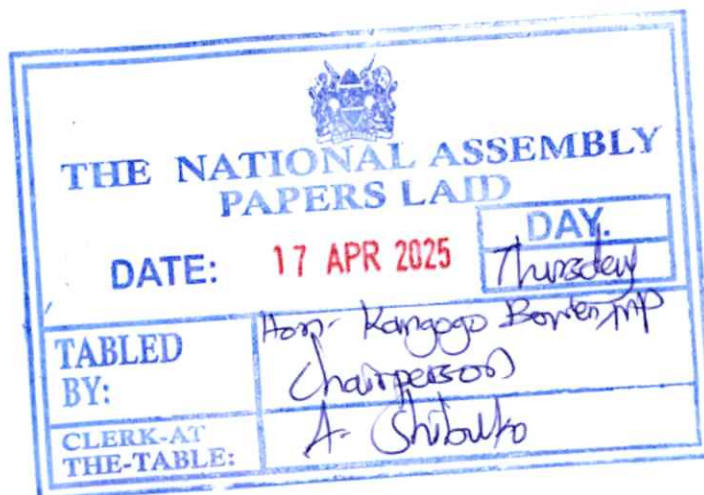 THE NATIONAL ASSEMBLY
PAPERS LAID
DATE: 17 APR 2025
DAY.
Thursday
TABLED BY:
Hon. Kangogo Bowen, MP
Chairperson
CLERK-AT THE-TABLE:
A. Shibuko